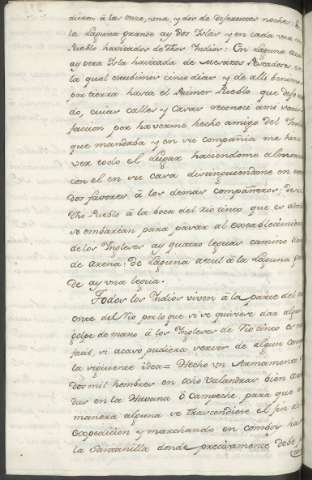 dieron à las once, una, y dos de diferentes noches: En
la laguna grande ay dos Islas y en cada una un
Pueblo havitados de Indios: En laguna
ay otra Isla havitada de Mestizos Pescadores en
la qual estubimos cinco dias y de alli benimos
por tierra hasta el Primer Pueblo que
do, cuias calles y Casas reconocí a mi satis
faccion por haverme hecho amigo del
que mandaba y en su compañia me hacia
ver todo el lugar haciendome almorzar
con el en su casa distinguiendome en
dos favores à los demas compañeros, desde
dho Pueblo à la boca del rio tinto que es donde
se embarcan para pasar al establecimiento
de los Ingleses ay quatro leguas camino
de arena: de laguna azul à la laguna gran
de ay una legua.
Todos los Indios viven à la parte del
once del Rio por lo que si se quisiere dar algun
golpe de mano à los Ingleses de Rio tinto es mui
facil, si acaso pudiera servir de algun
la siguiente idea = Hecho un Armamento
dos mil hombres en ocho Balandras bien
das en la Havana ò Campeche para que
manera alguna se trascendiese el fin
expedicion y marchando en comboy ha
la donde precisamente debe